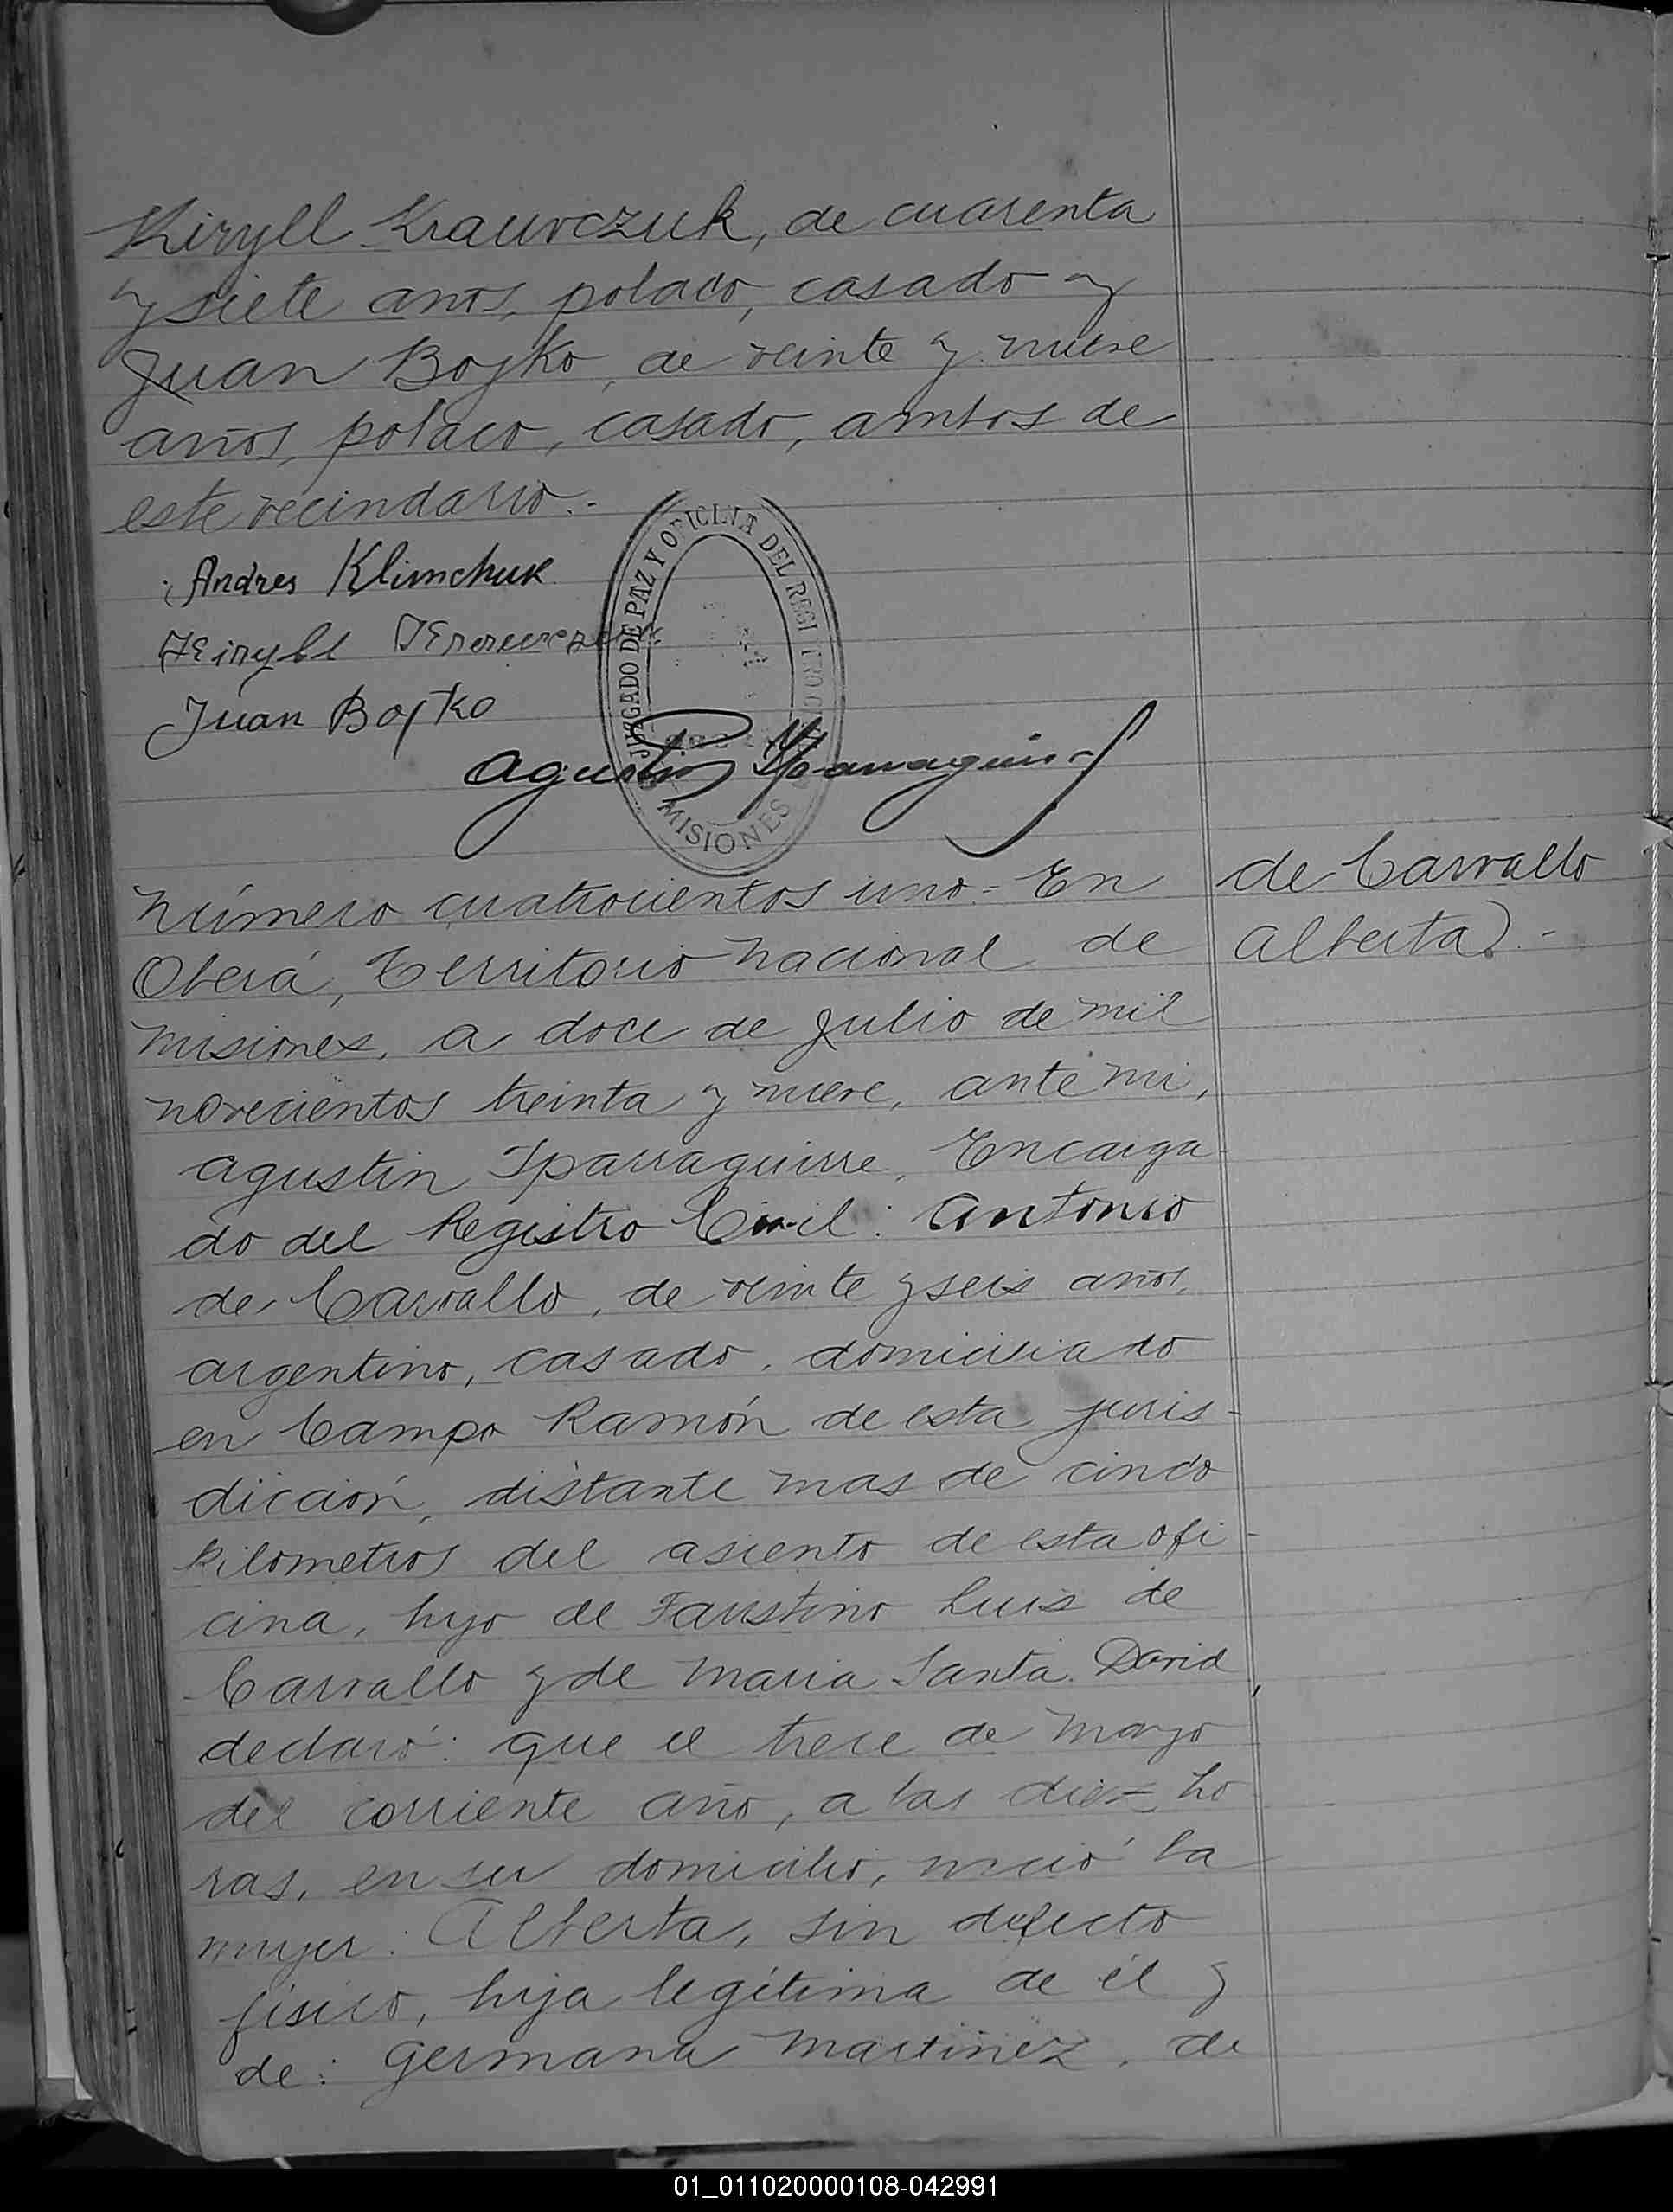 Kiryll Krawczuk, de cuarenta
y siete años, polaco, casado y
Juan Bojko, de veinte y nueve
años, polaco, casado, ambos de
este vecindario.-
Andres Klimchuk
Kiryll
Juan Bojko
JUZGADO DE PAZ Y OFICINA DEL REGISTRO
MISIONES
Agustin Yparraguirre
Número cuatrocientos uno.- En
de Carvallo
Oberá, Territorio Nacional de
Alberta).-
Misiones, a doce de Julio de mil
novecientos treinta y nueve, ante mi,
Agustin Yparraguirre, Encarga-
do del Registro Civil: Antonio
de Carvallo, de veinte y seis años,
argentino, casado, domicisiado
en Campo Ramón de esta juris-
dicción, distante mas de cinco
kilometros del asiento de esta ofi-
cina, hijo de Faustino Luis de
Carvallo y de Maria Santa David,
declaró: que el trece de Mayo
del corriente año, a las diez ho-
ras, en su domicilio, nació la
mujer: Alberta, sin defecto
físico, hija legítima de él y
de: Germana Martinez, de
01_011020000108-042991